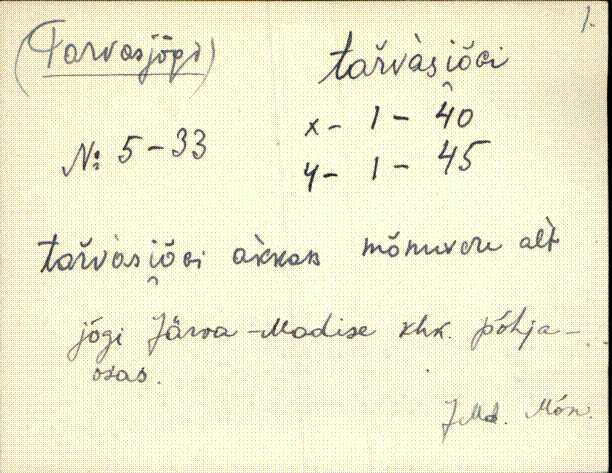 1.
(Tarvasjõgi)
tar̆vàsi̯õɢi
N: 5-33
x - 1 - 40
y - 1 - 45
tar̆vàsi̯õɢi àkkaʙ mõnuvere alt
jõgi Järva-Madise khk. põhja-
osas.
JMd. Mõn.